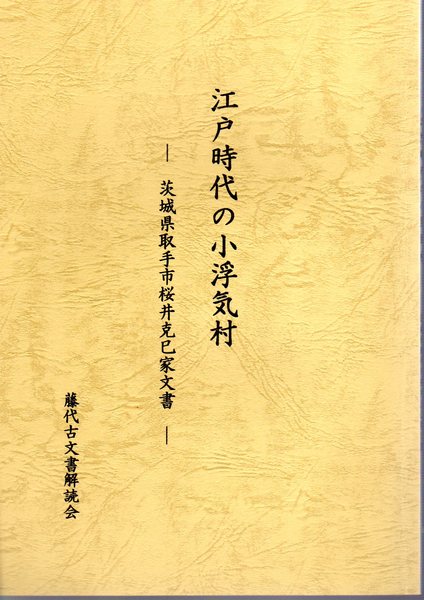 江戸時代の小浮気村
― 茨城県取手市桜井克巳家文書 ―
藤代古文書解読会